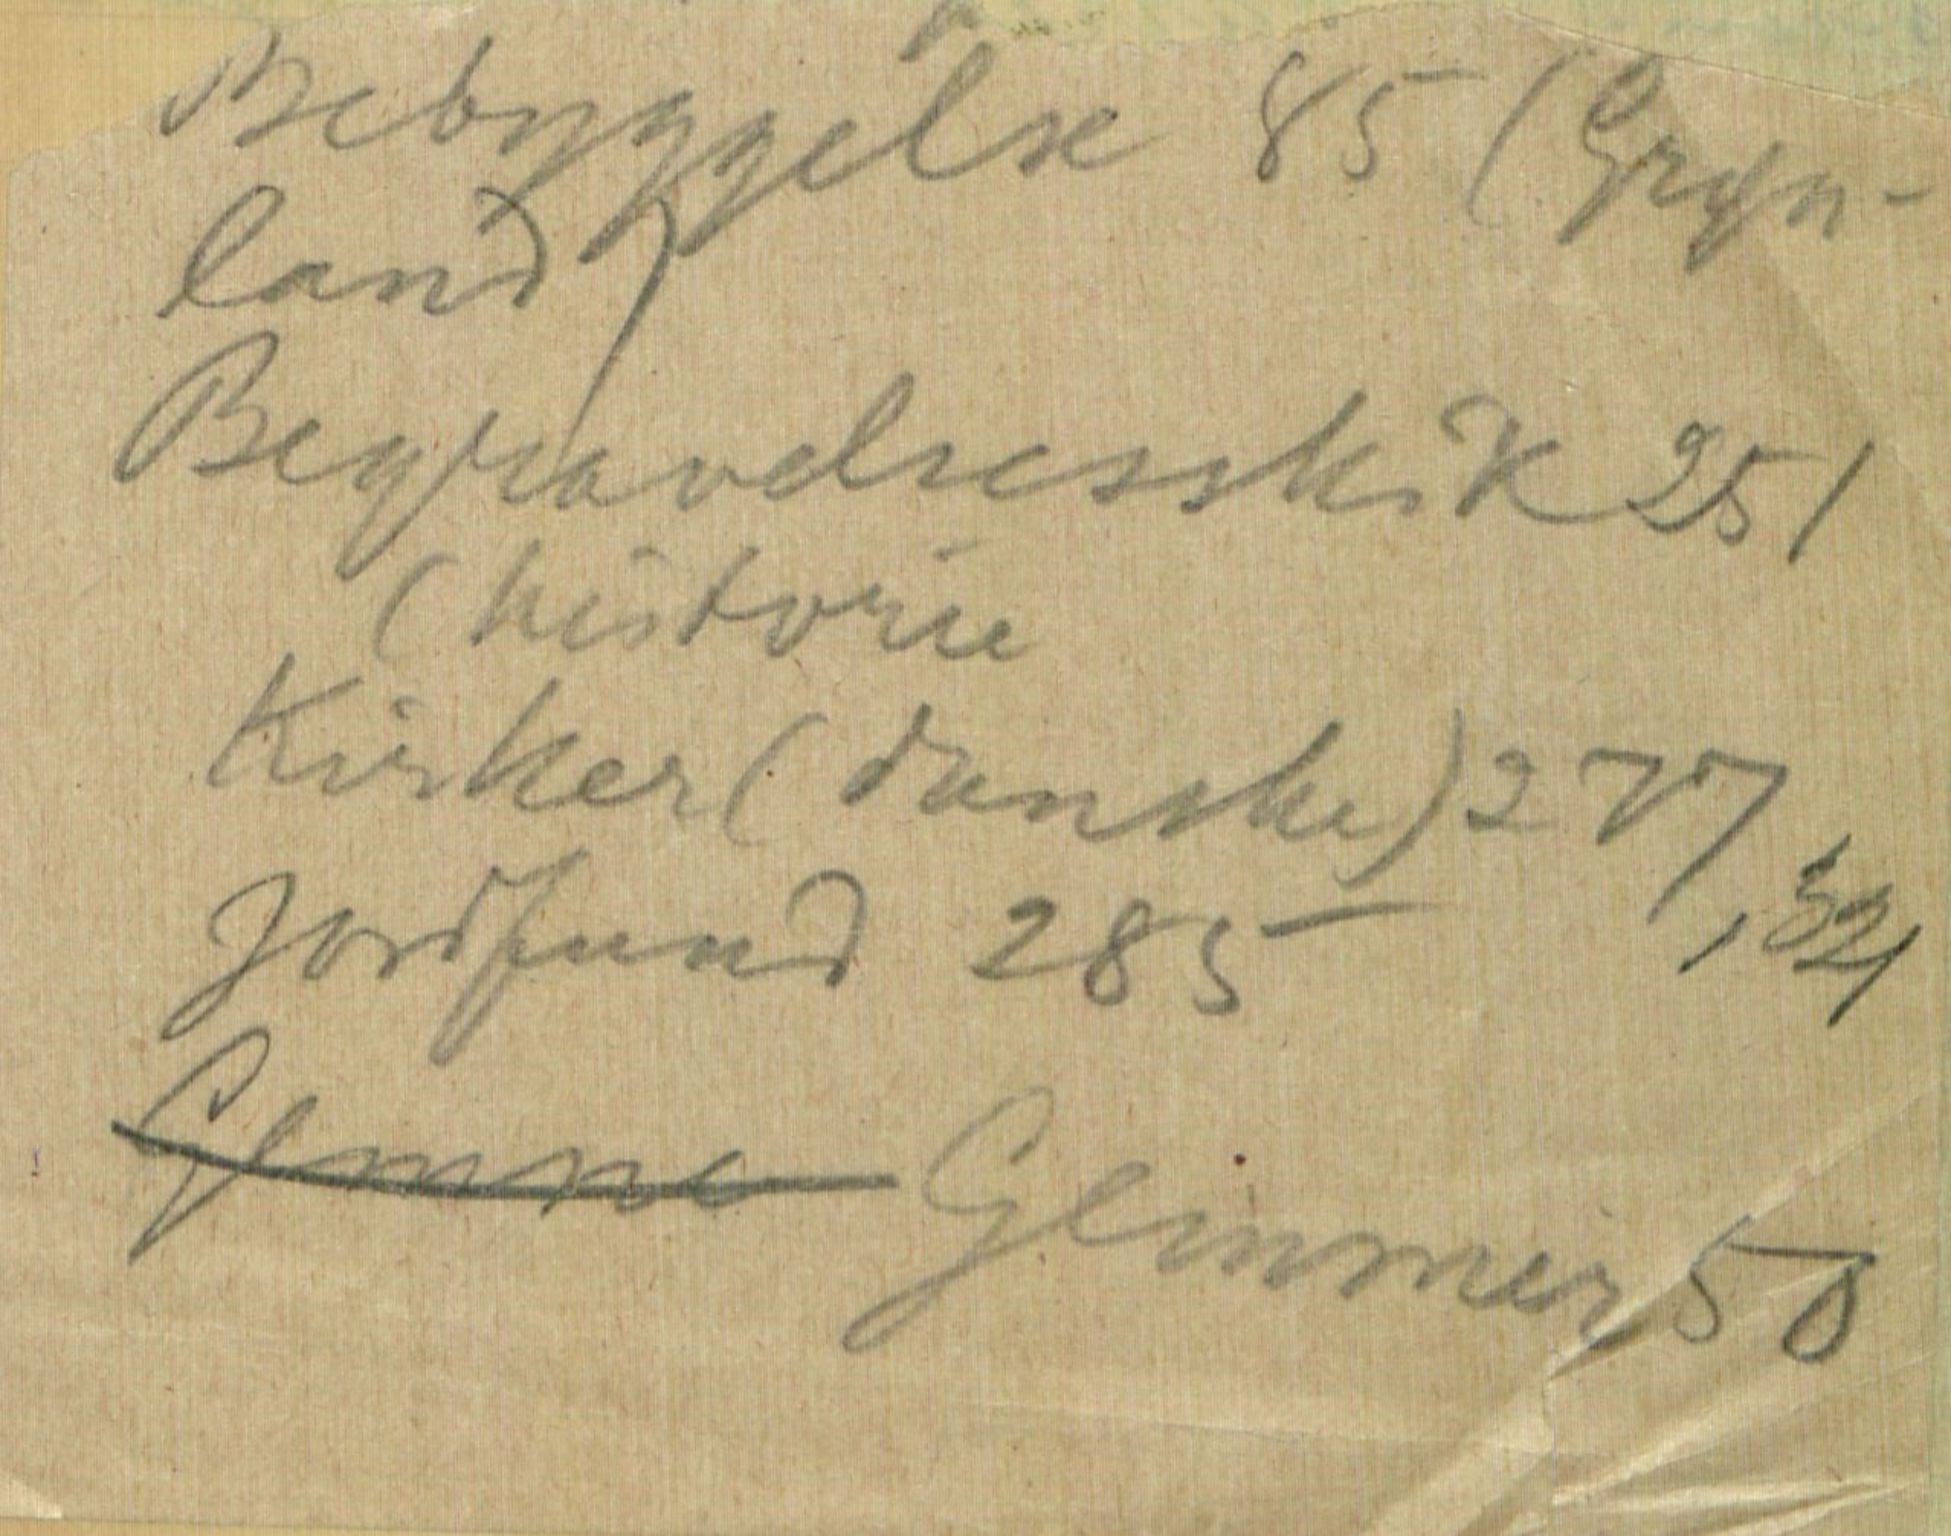 Bebyggelse 85 (Grøn-
land)
Begravelsesskik 251
(historie
Kirker (danske) 277, 321
Jordfund 285
Gemme Gemmer 50